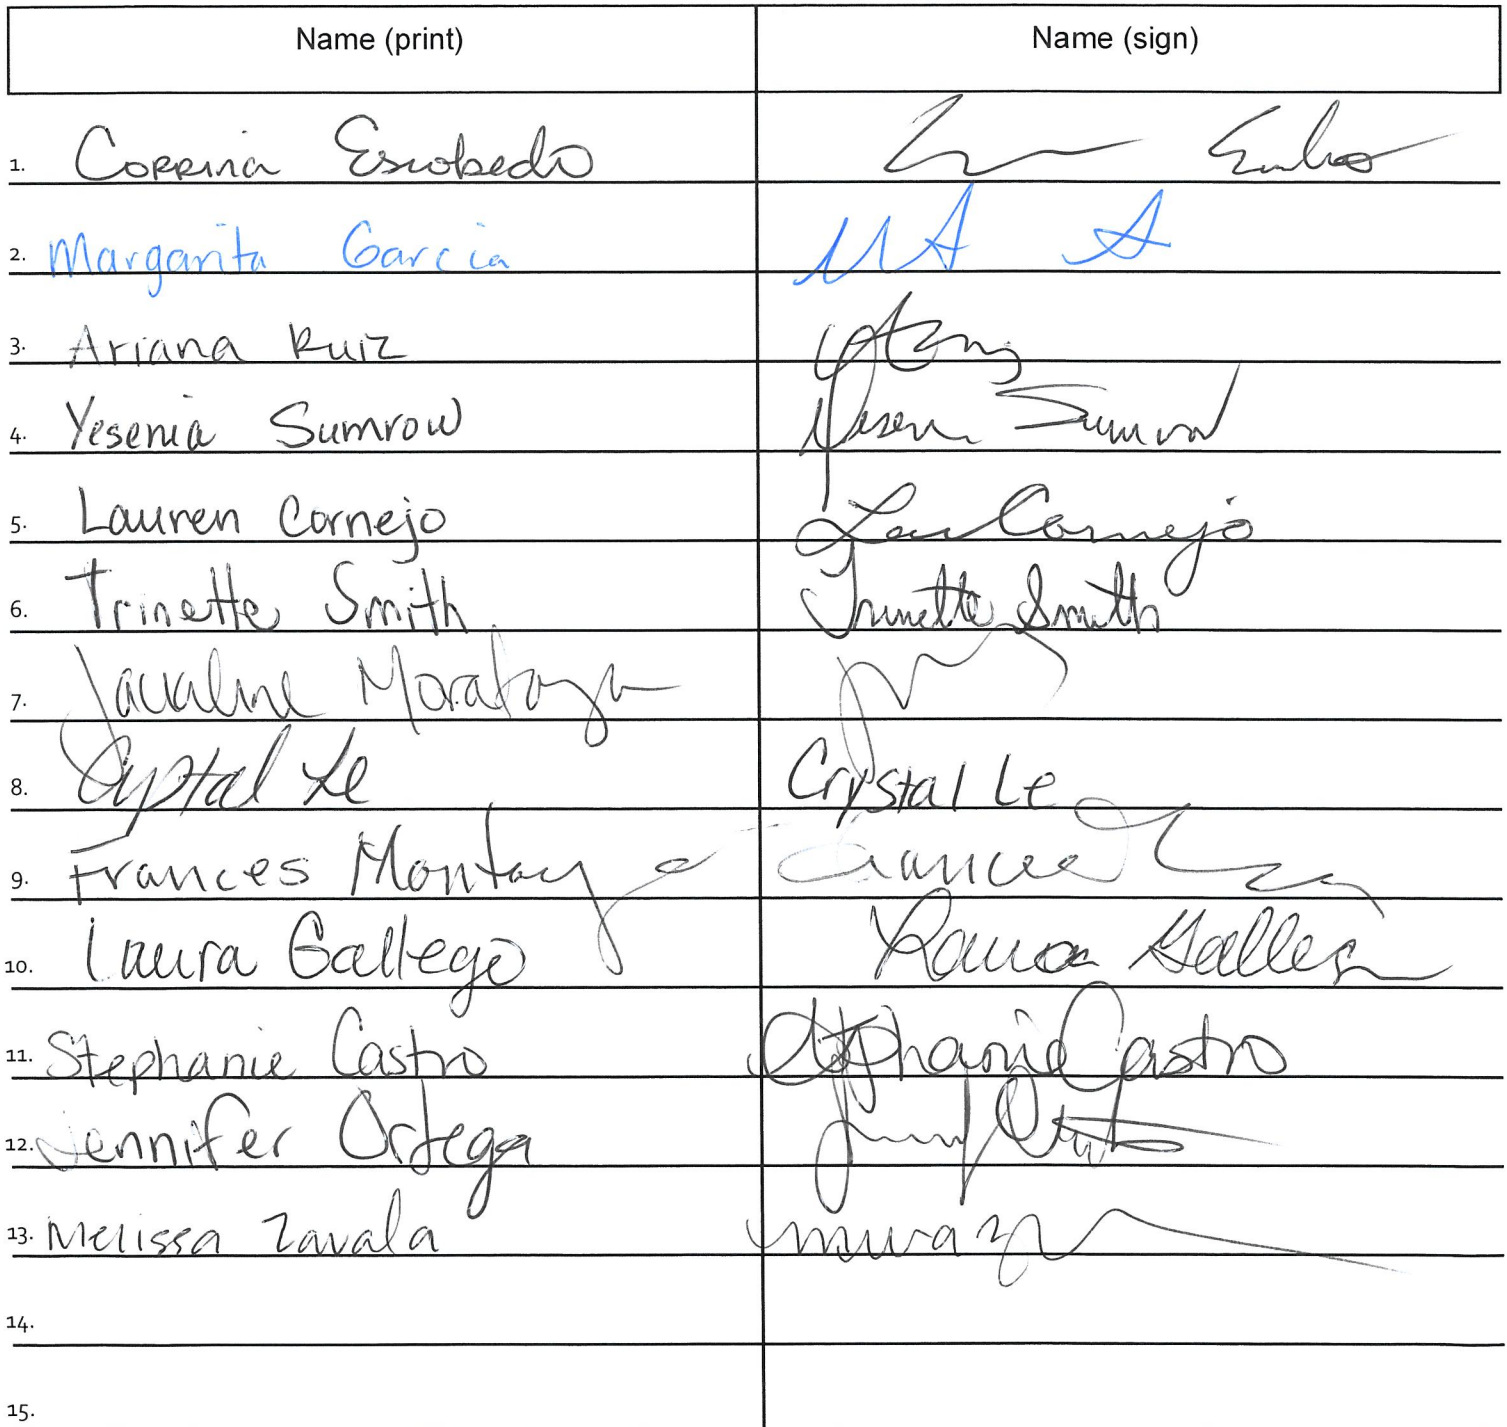 Name (print) Name (sign)
1. Corrina Escobedo
2. Margarita Garcia
3. Ariana Ruiz
4. Yesenia Sumrow Yesenia Sumrow
5. Lauren Cornejo Lau Cornejo
6. Trinette Smith Trinette Smith
7. Jacqueline
8. Crystal Le Crystal Le
9. Frances Montoya Frances
10. Laura Gallego Laura Gallego
11. Stephanie Castro Stephanie Castro
12. Jennifer Ortega
13. Melissa Zavala
14.
15.